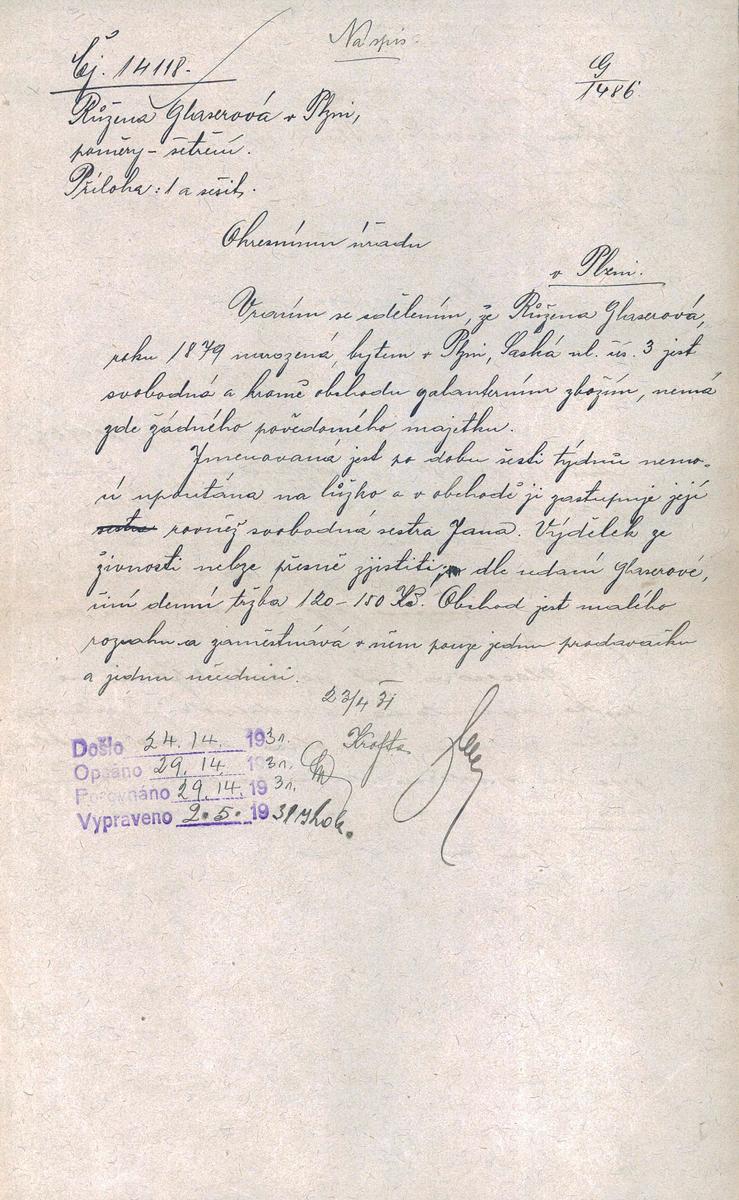 Na spis.
Čj. 14118.
G
1486
Růžena Glaserová v Plzni,
poměry - šetření.
Příloha: 1 a sešit.
Okresnímu úřadu
v Plzni.
Vracím se sdělením, že Růžena Glaserová,
roku 1879 narozená, bytem v Plzni, Saská ul. čís. 3 jest
svobodná a kromě obchodu galanterním zbožím, nemá
zde žádného povědomého majetku.
Jmenovaná jest po dobu šesti týdnů nemo-
cí upoutána na lůžko a v obchodě ji zastupuje její
sestra rovněž svobodná sestra Jana. Výdělek ze
živnosti nelze přesně zjistiti; dle udání Glaserové,
činí denní tržba 120-150 Kč. Obchod jest malého
rozsahu a zaměstnává v něm pouze jednu prodavačku
a jednu učednici.
23/4 31
Krofta
Došlo 24.14. 1931.
Opsáno 29.14. 1931.
Porovnáno 29.14. 1931.
Vypraveno 2.5. 1931